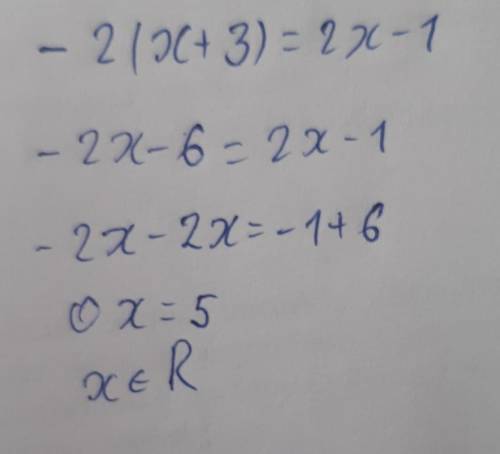 - 2(x+3)=2x-1
- 2x-6=2x-1
- 2x-2x=-1+6
0 x=5
x∈R